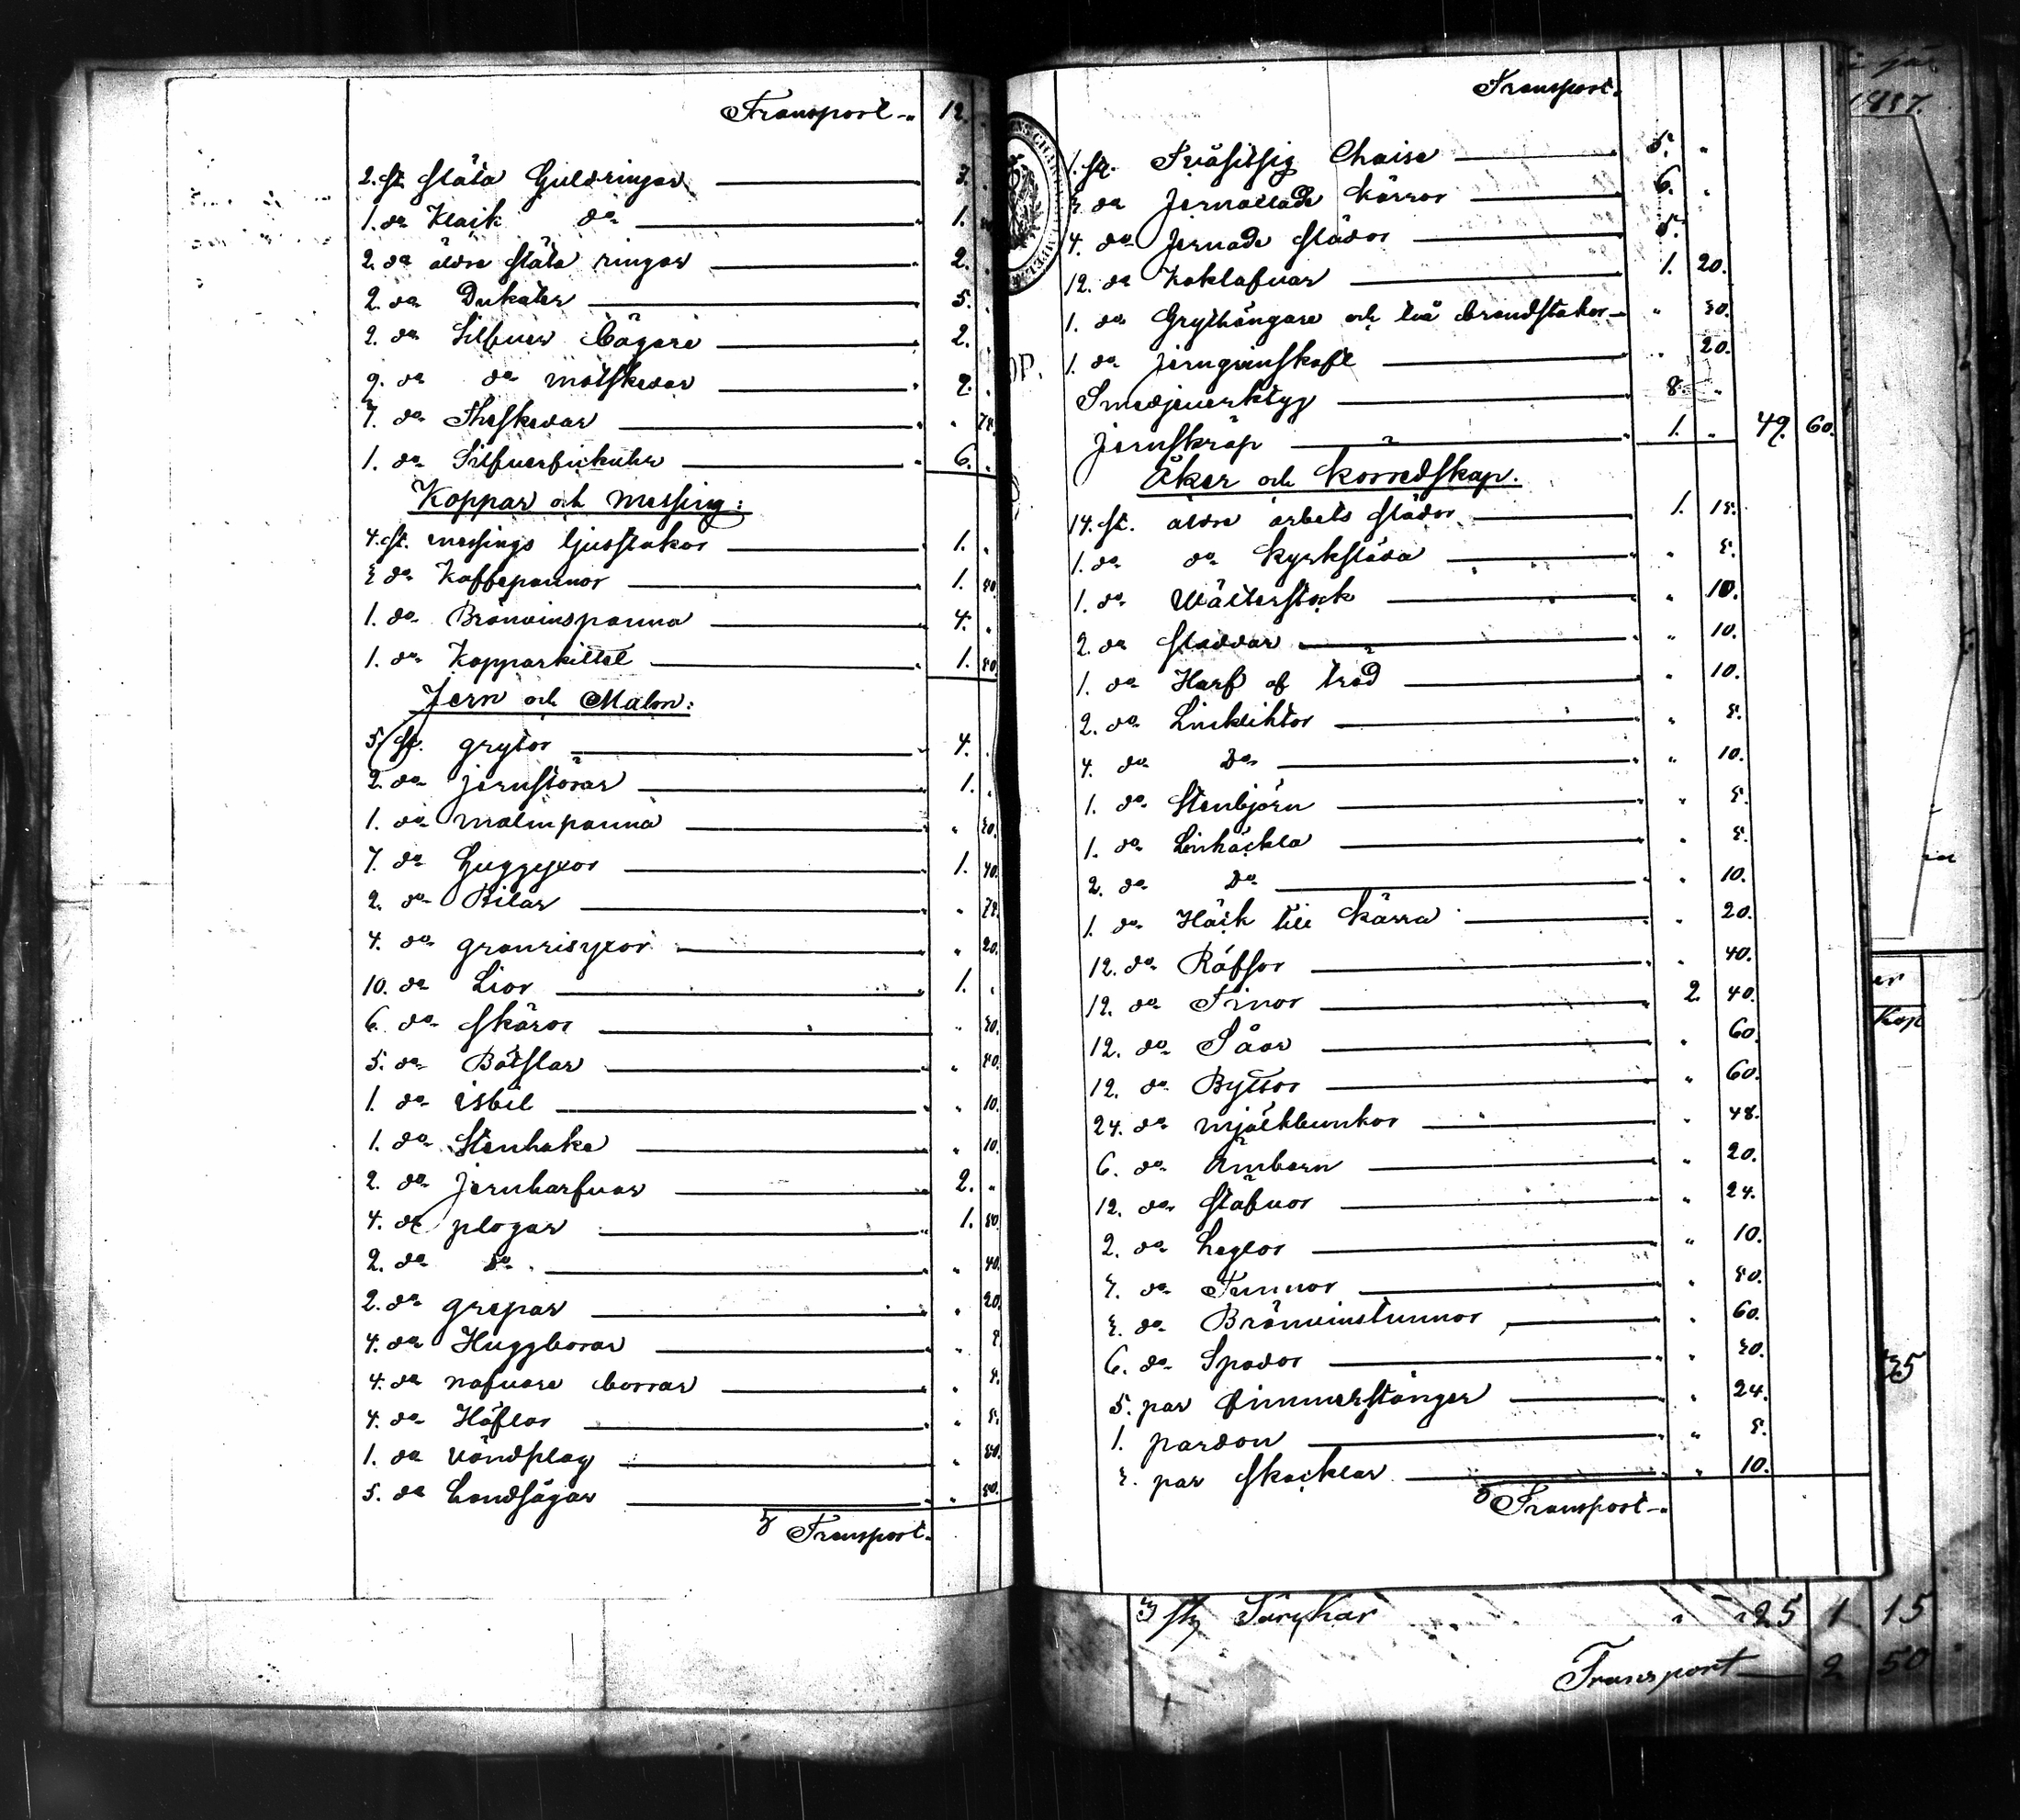 Transport 12.
2. st. släta Guldringar 3.
1. do Klack do 1.
2. do äldre släta ringar 2.
2. do Dukater 5.
2. do Silfver bägare 2.
9. do do matskedar 2.
7. do Theskedar " 75.
1. do Silfver 6.
Koppar och Messing:
4. st. messings ljusstakar 1.
3 do Kaffepannor 1. 50.
1. do Brännvinspanna 4.
1. do Kopparkittel 1. 50.
Jern och Malm:
5 st. grytor 4.
2. do jernstörar 1.
1. do malmpanna " 50.
7. do Huggyxor 1. 40.
2. do Bilar " 75.
4. do granrisyxor " 20.
10. do Liar 1.
6. do skäror " 30.
5. do Båtslar
1. do isbil " 10.
1. do Stenhake " 10.
2. do jernharfvar 2. "
4. do plogar 1. 50.
2. do do " 40.
2. do grepar " 20.
4. do Huggborar " 5.
4. do nafvare borrar " 5.
4. do Höflar " 5.
1. do vändplog " 50.
5. do Landsågar " 50.
Transport
Transport
1. st. Tvåsitsig Chaise 5. "
3 do Jernaxlade kärror 6. "
4. do Jernade slädor 5.
12. do Koklafvar 1. 20.
1. do Grythängare och två brandstakar " 30.
1. do jerngrinskaft " 20.
Smedjeverktyg 8. "
Jernskräp 1. " 49. 60.
Åker och körredskap.
14. st. äldre arbets slädor 1. 15.
1. do do kyrksläda " 5.
1. do Wälterstock " 10.
2. do sladdar " 10.
1. do Harf af träd " 10.
2. do Linkliktor " 5.
4. do Do " 10.
1. do Stenbjörn " 5.
1. do Linhäckla " 5.
2. do Do " 10.
1. do Häck till kärra " 20.
12. do Räfsor " 40.
12. do Tinor 2. 40.
12. do Såar " 60.
12. do Byttor " 60.
24. do mjölkbunkar " 48.
6. do Ämbarn " 20.
12. do stäfvor " 24.
2. do Leglar " 10.
7. do Tunnor " 50.
3. do Brännvinstunnor " 60.
6. do Spador " 30.
5. par Timmerstänger " 24.
1. pardon " 5.
3. par skacklar " 10.
Transport
1897.
er
Kop
35
3 st. Särkar " 25 1 15
Transport 2 50